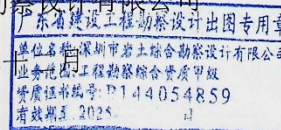 察设计有限公司
广东省建设工程勘察设计出图专用章
单位名称:深圳市岩土综合勘察设计有限公司
十 月
业务范围:工程勘察综合资质甲级
资质证书编号:B144054859
有效期至:2025